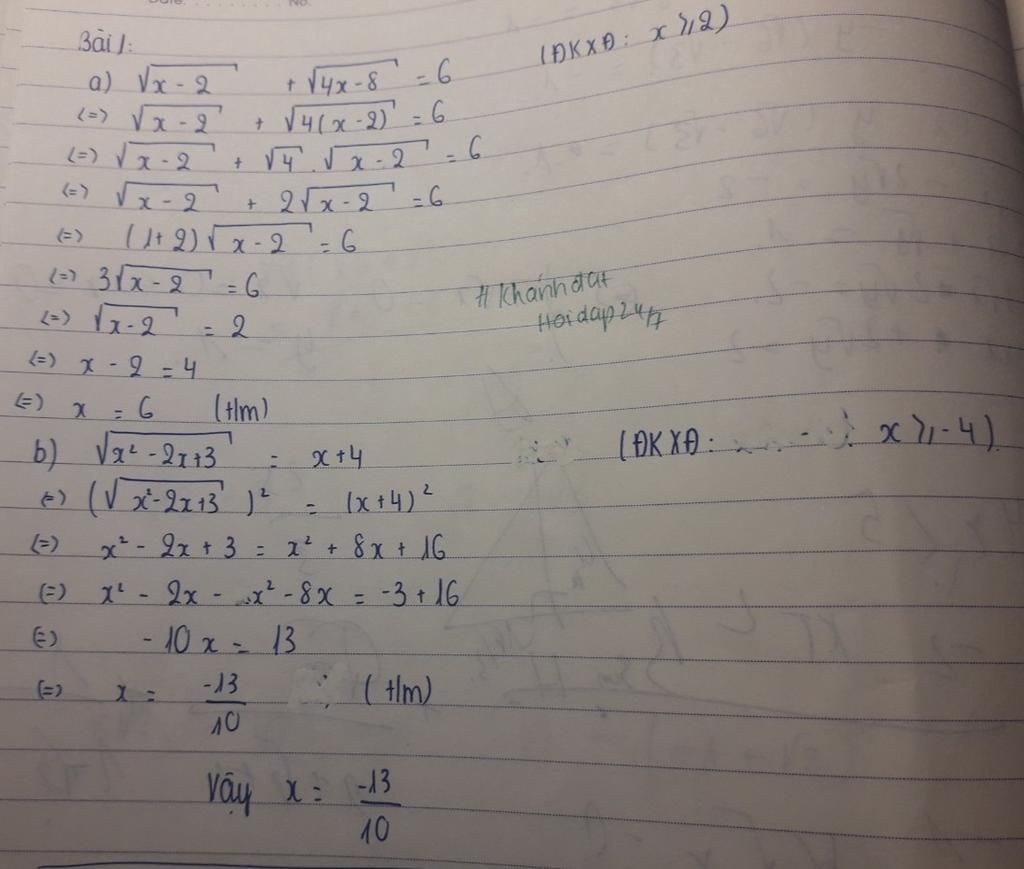 Bài 1:
a) √(x-2) + √(4x-8) = 6 (ĐKXĐ: x ≥ 2)
(=) √(x-2) + √(4(x-2)) = 6
(=) √(x-2) + √4 . √(x-2) = 6
(=) √(x-2) + 2√(x-2) = 6
(=) (1+2)√(x-2) = 6
(=) 3√(x-2) = 6
(=) √(x-2) = 2
# Khánhdat
Hoidap24/7
(=) x - 2 = 4
(=) x = 6 (t/m)
b) √(x² - 2x+3) = x+4 (ĐKXĐ: x ≥ -4)
(=) (√(x²-2x+3))² = (x+4)²
(=) x² - 2x + 3 = x² + 8x + 16
(=) x² - 2x - x² - 8x = -3 + 16
(=) -10x = 13
(=) x = -13/10 (t/m)
Vậy x = -13/10